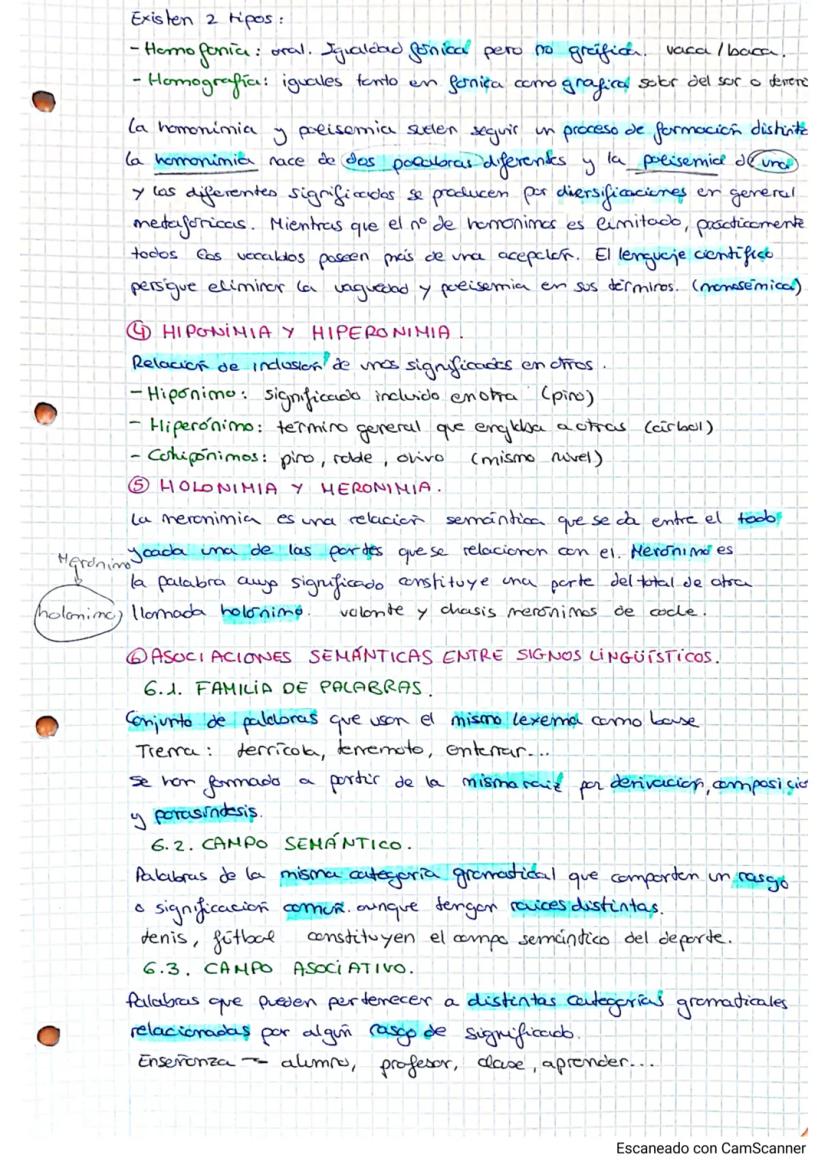 Existen 2 tipos:
- Homofonía: oral. Igualdad fónica pero no gráfica. vaca/baca.
- Homografía: iguales tanto en fónica como gráfica sobr del sor o
La homonimia y polisemia suelen seguir un proceso de formación distinto
La homonimia nace de dos palabras diferentes y la polisemia de una
y los diferentes significados se producen por diversificaciones en general
metafóricas. Mientras que el nº de homónimos es limitado, prácticamente
todos los vocablos poseen más de una acepción. El lenguaje científico
persigue eliminar la vaguedad y polisemia en sus términos. (monosémica)
④ HIPONIMIA Y HIPERONIMIA.
Relación de inclusión de unos significados en otros.
- Hipónimo: significado incluido en otra (pino)
- Hiperónimo: término general que engloba a otras (árbol)
- Cohipónimos: pino, roble, olivo (mismo nivel)
⑤ HOLONIMIA Y MERONIMIA.
La meronimia es una relación semántica que se da entre el todo
y cada una de las partes que se relacionan con el. Merónimo es
la palabra cuyo significado constituye una parte del total de otra
llamada holónimo. volante y chasis merónimos de coche.
Merónimo
holonimo
⑥ ASOCIACIONES SEMÁNTICAS ENTRE SIGNOS LINGÜÍSTICOS.
6.1. FAMILIA DE PALABRAS.
Conjunto de palabras que usan el mismo lexema como base
Tierra: terrícola, terremoto, enterrar...
Se han formado a partir de la misma raíz por derivación, composicio
y parasíntesis.
6.2. CAMPO SEMÁNTICO.
Palabras de la misma categoría gramatical que comparten un rasgo
o significación común. aunque tengan raíces distintas.
tenis, fútbol constituyen el campo semántico del deporte.
6.3. CAMPO ASOCIATIVO.
Palabras que pueden pertenecer a distintas categorías gramaticales
relacionadas por algún rasgo de significado.
Enseñanza - alumno, profesor, clase, aprender...
Escaneado con CamScanner